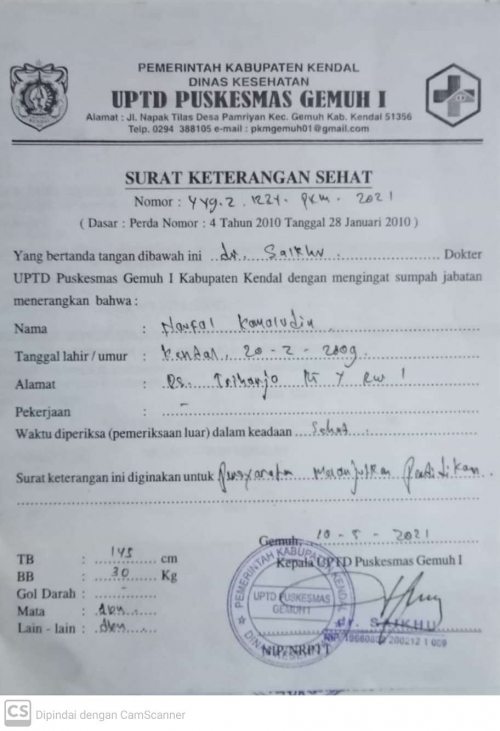 PEMERINTAH KABUPATEN KENDAL
DINAS KESEHATAN
UPTD PUSKESMAS GEMUH I
Alamat : Jl. Napak Tilas Desa Pamriyan Kec. Gemuh Kab. Kendal 51356
Telp. 0294 388105 e-mail : pkmgemuh01@gmail.com
SURAT KETERANGAN SEHAT
Nomor : 449.2 . 1221. pkm. 2021
( Dasar : Perda Nomor : 4 Tahun 2010 Tanggal 28 Januari 2010 )
Yang bertanda tangan dibawah ini dr. Saikhu Dokter
UPTD Puskesmas Gemuh I Kabupaten Kendal dengan mengingat sumpah jabatan
menerangkan bahwa :
Nama : Naufal Kamaludin
Tanggal lahir / umur : Kendal, 20-2-2009
Alamat : Ds. Triharjo Rt 4 RW 1
Pekerjaan : -
Waktu diperiksa (pemeriksaan luar) dalam keadaan Sehat
Surat keterangan ini diginakan untuk Persyaratan Melanjutkan Pendidikan
Gemuh, 10-5-2021
Kepala UPTD Puskesmas Gemuh I
TB : 145 cm
BB : 30 Kg
Gol Darah : -
Mata : dbn
Lain - lain : dbn
PEMERINTAH KABUPATEN KENDAL
UPTD PUSKESMAS
GEMUH I
dr. SAIKHU
NIP/NRPTT
CS Dipindai dengan CamScanner